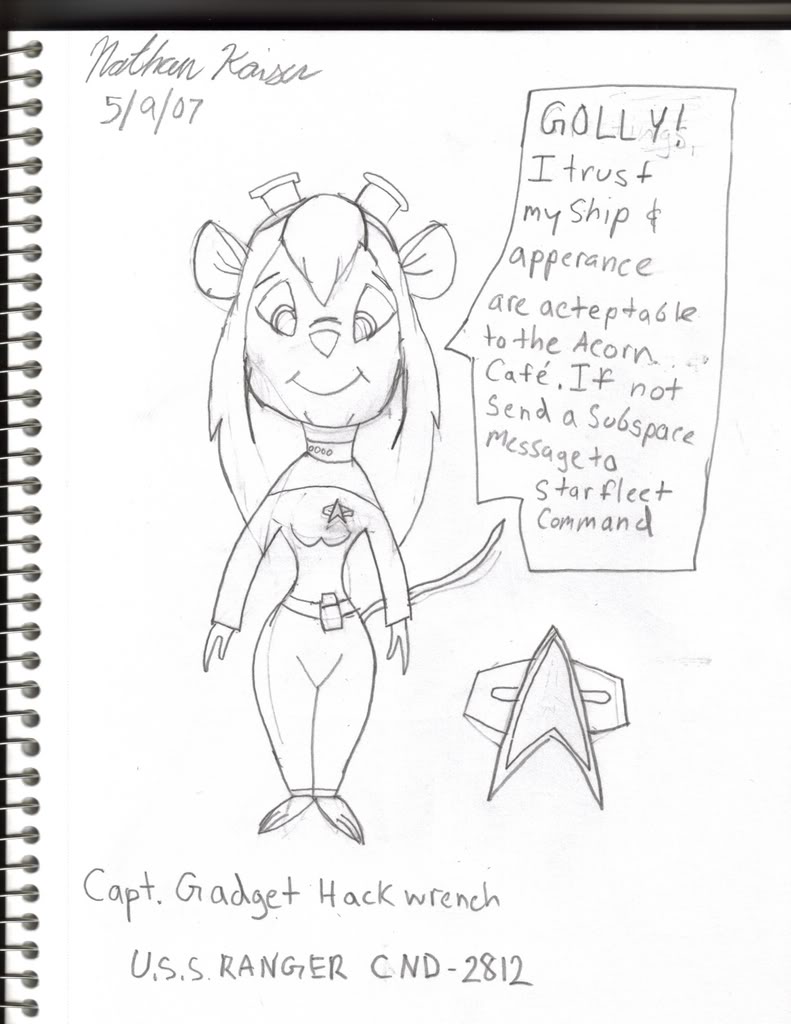 Nathan Kaiser
5/9/07
GOLLY!
I trust
my Ship &
apperance
are acteptable
to the Acorn
Café. If not
Send a Subspace
Message to
Starfleet
Command
Capt. Gadget Hackwrench
U.S.S. RANGER CND-2812